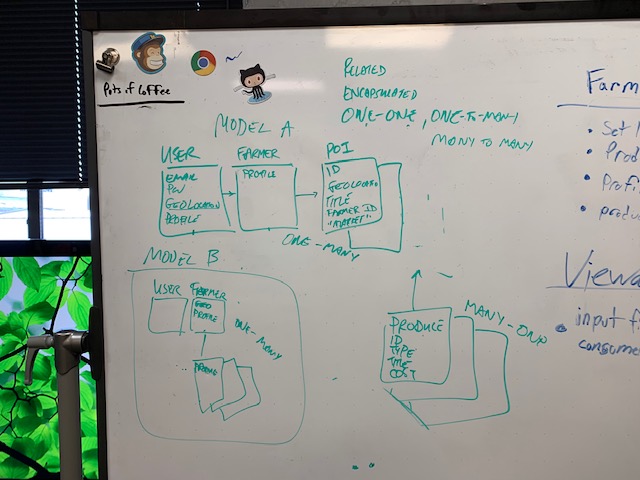 Pots of Coffee
RELATED
ENCAPSULATED
ONE-ONE, ONE-TO-MANY
MONY TO MANY
MODEL A
USER
EMAIL
PW
GEOLOCATION
PROFILE
FARMER
PROFILE
POI
ID
GEOLOCATION
TITLE
FARMER ID
"MARKET"
ONE-MANY
MODEL B
USER
FARMER
GEO
PROFILE
ONE-MANY
PROMO
PRODUCE
ID
TYPE
TITLE
COST
MANY-ONE
Farm
• Set
• Prod
• Profi
• produ
View
• input f
consume